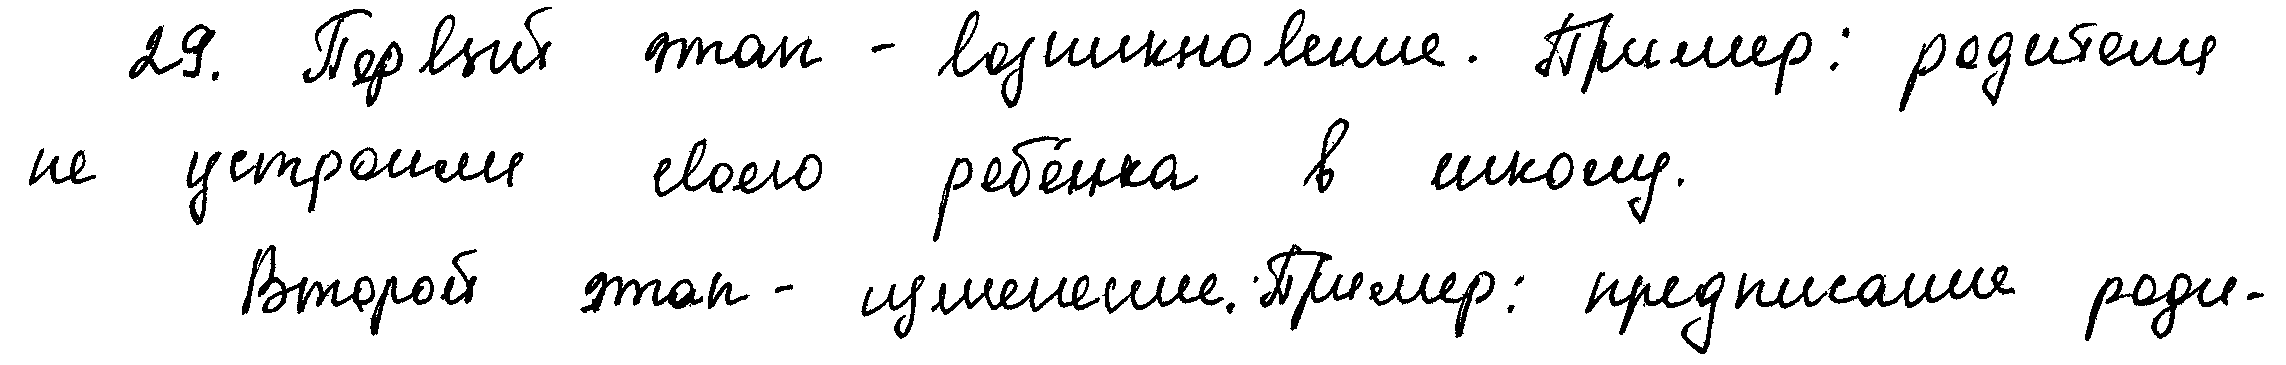 29. Первый этап - возникновение. Пример: родители
не устроили своего ребёнка в школу.
Второй этап - изменение. Пример: предписание роди-